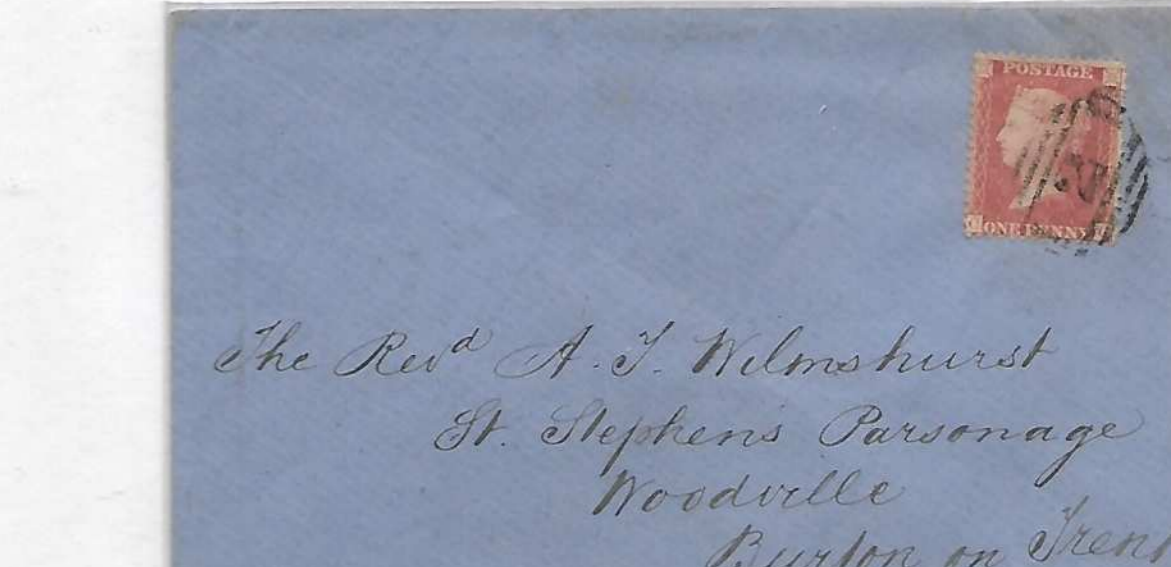 POSTAGE
ONE PENNY
The Revd A. T. Wilmshurst
St. Stephens Parsonage
Woodville
Burton on Trent